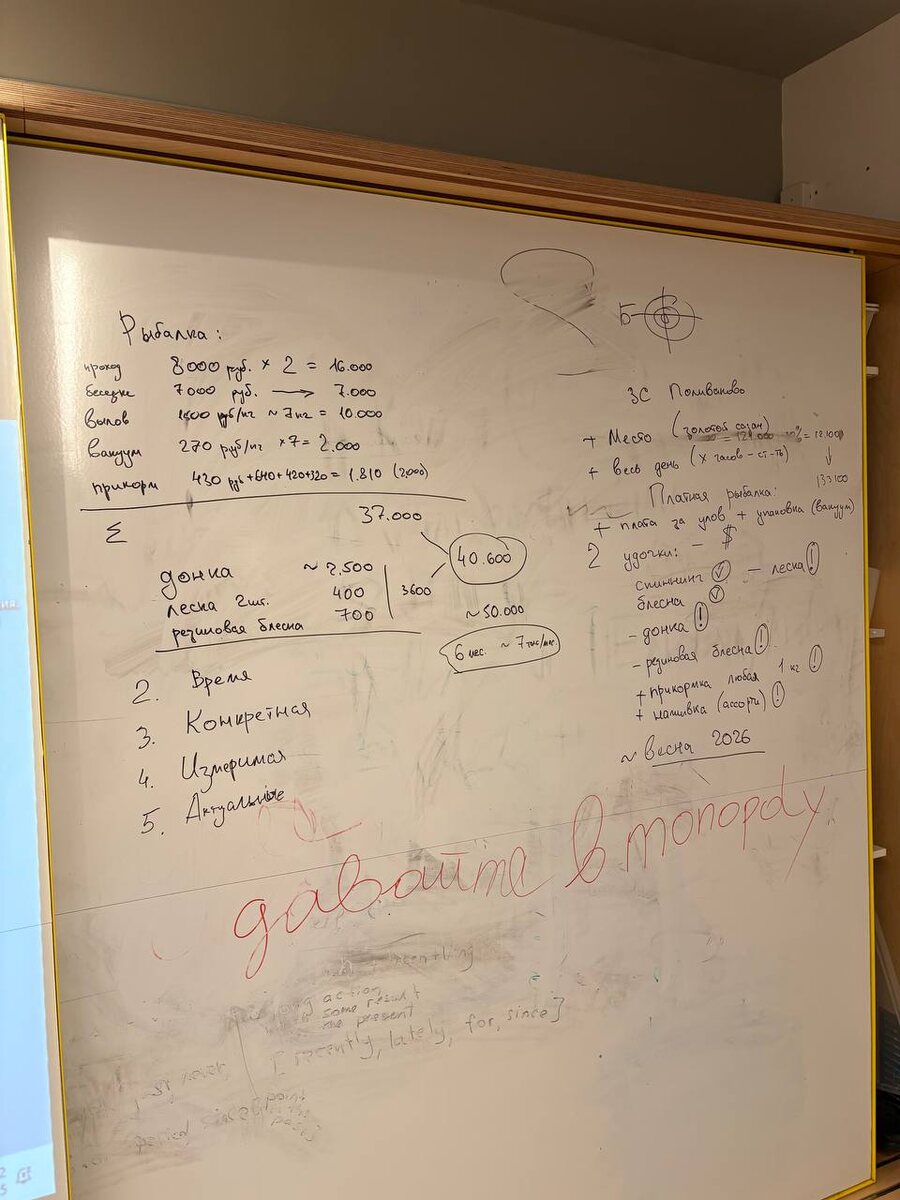 Рыбалка:
проход 8000 руб. × 2 = 16.000
беседка 7000 руб. → 7.000
вылов руб/кг ~ 7 кг = 10.000
вакуум 270 руб/кг × 7 = 2.000
прикорм 430 руб + 640 + 420 + 320 = 1.810 (2000)
Σ 37.000
40.600
донка ~ 2.500
леска 2шт. 400
3600
резиновая блесна 700
~ 50.000
6 мес. ~ 7 тыс/мес.
2. Время
3. Конкретная
4. Измеримая
5. Актуальные
Б
ЗС Поливаново
+ Место (золотой сазан)
+ весь день (х часов - ст-ть)
133100
Платная рыбалка:
+ плата за улов + упаковка (вакуум)
2 удочки: - $
спиннинг ✓ - леска !
блесна ✓
- донка !
- резиновая блесна !
+ прикормка любая 1 кг !
+ (ассорти) !
~ Весна 2026
давайте в monopoly
action
some result
the present
[recently, lately, for, since]
never,
period since